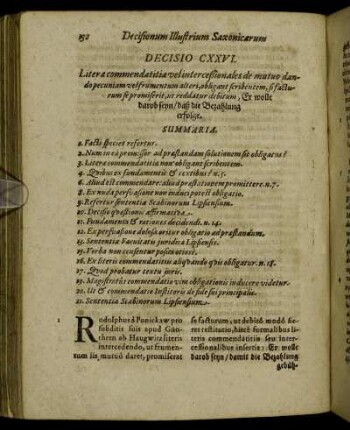 192 Decisionum Illustrium Saxonicarum
DECISIO CXXVI.
Literæ commendatitiæ vel intercessionales de mutuo dan-
do pecuniam vel frumentum alteri, obligant scribentem, si factu-
rum se promiserit, ut reddatur debitum, Er wolle
darob seyn / daß die Bezahlung
erfolge.
SUMMARIA.
1. Facti species refertur.
2. Num in ea promissor ad præstandam solutionem sit obligatus?
3. Literæ commendatitiæ non obligant scribentem.
4. Quibus ex fundamentis & textibus? n. 5.
6. Aliud est commendare: aliud præstationem promittere. n. 7.
8. Ex nuda persvasione non induci potest obligatio.
9. Refertur sententia Scabinorum Lipsensium.
10. Decisio quæstionis affirmativa.
11. Fundamenta & rationes decidendi. n. 14.
12. Ex persvasione dolosa oritur obligatio ad præstandum.
13. Sententia Facultatis juridicæ Lipsensis.
15. Verba non censentur posita otiose.
16. Ex literis commendatitiis aliquando quis obligatur. n. 18.
17. Quod probatur textu juris.
19. Magistratus commendatio vim obligationis inducere videtur.
20. Ut & commendatio Institoris de fide sui principalis.
21. Sententia Scabinorum Lipsensium.
1 Rudolphus à Ponickaw pro
subditis suis apud Gün-
thern ab Haugwitz literis
intercedendo, ut frumen-
tum iis mutuò daret, promiserat
se facturum, ut debitò modò fie-
ret restitutio, hisce formalibus li-
teris commendatitiis seu inter-
cessionalibus insertis: Er wolle
darob seyn / damit die Bezahlung
gebüh-